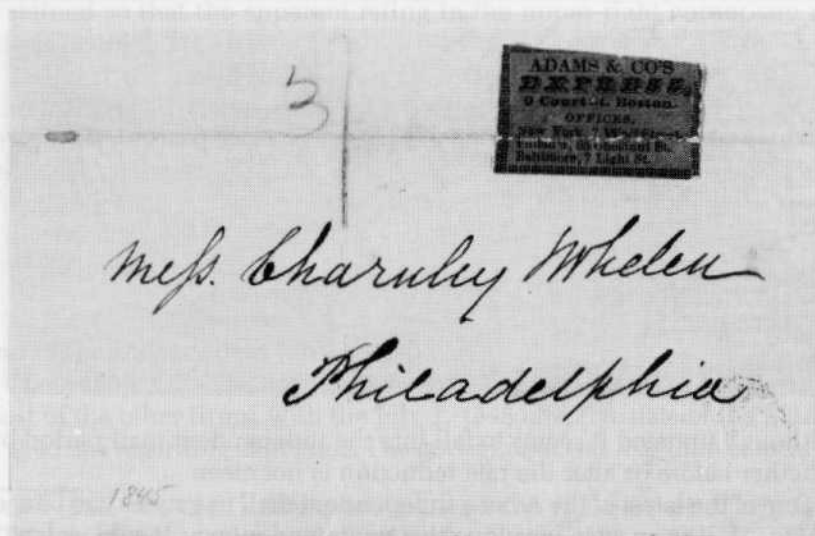 3
ADAMS & CO'S
EXPRESS,
9 Court st. Boston.
OFFICES.
New York, 7 Wall Street.
85 Chestnut St.
Baltimore, 7 Light St.
Mess. Charnley Whelen
Philadelphia
1845